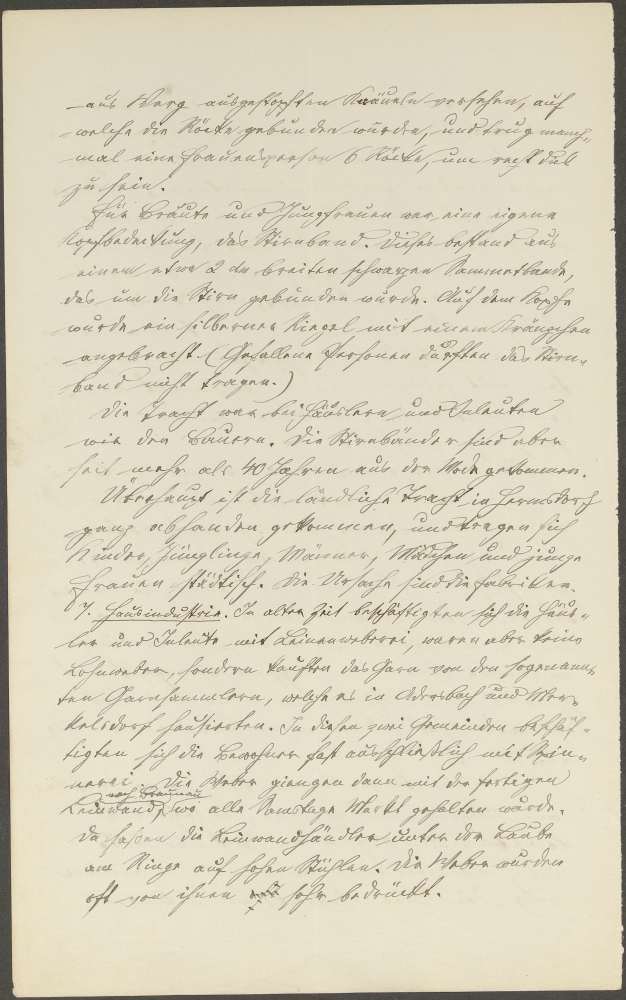 aus Werg ausgestopften Knäueln versehen, auf
welche die Röcke gebunden wurden, und trug manch-
mal eine Frauensperson 6 Röcke, um recht dick
zu sein.
Für Bräute und Jungfrauen war eine eigene
Kopfbedeckung, das Stirnband. Dieses bestand aus
einem etwa 2 dm breiten schwarzen Sammetbande,
das um die Stirn gebunden wurde. Auf dem Kopfe
wurde ein silberner Riegel mit einem Kränzchen
angebracht. (Gefallene Personen durften das Stirn-
band nicht tragen.)
Die Tracht war bei Häuslern und Inleuten
wie den Bauern. Die Stirnbänder sind aber
seit mehr als 40 Jahren aus der Mode gekommen.
Überhaupt ist die ländliche Tracht in Hermsdorf
ganz abhanden gekommen, und tragen sich
Kinder, Jünglinge, Männer, Mädchen und junge
Frauen städtisch. Die Ursache sind die Fabriken.
7. Hausindustrie. In alter Zeit beschäftigten sich die Häus-
ler und Inleute mit Leinenweberei, waren aber keine
Lohnweber, sondern kauften das Garn von den sogenann-
ten Garnsammlern, welche es in Adersbach und Wer-
kelsdorf hausierten. In diesen zwei Gemeinden beschäf-
tigten sich die Bewohner fast ausschließlich mit Spin-
nerei. Die Weber giengen dann mit der fertigen
nach Braunau
Leinwand, wo alle Samstage Markt gehalten wurde.
Da saßen die Leinwandhändler unter der Laube
am Ringe auf hohen Stühlen. Die Weber wurden
oft von ihnen sehr bedrückt.